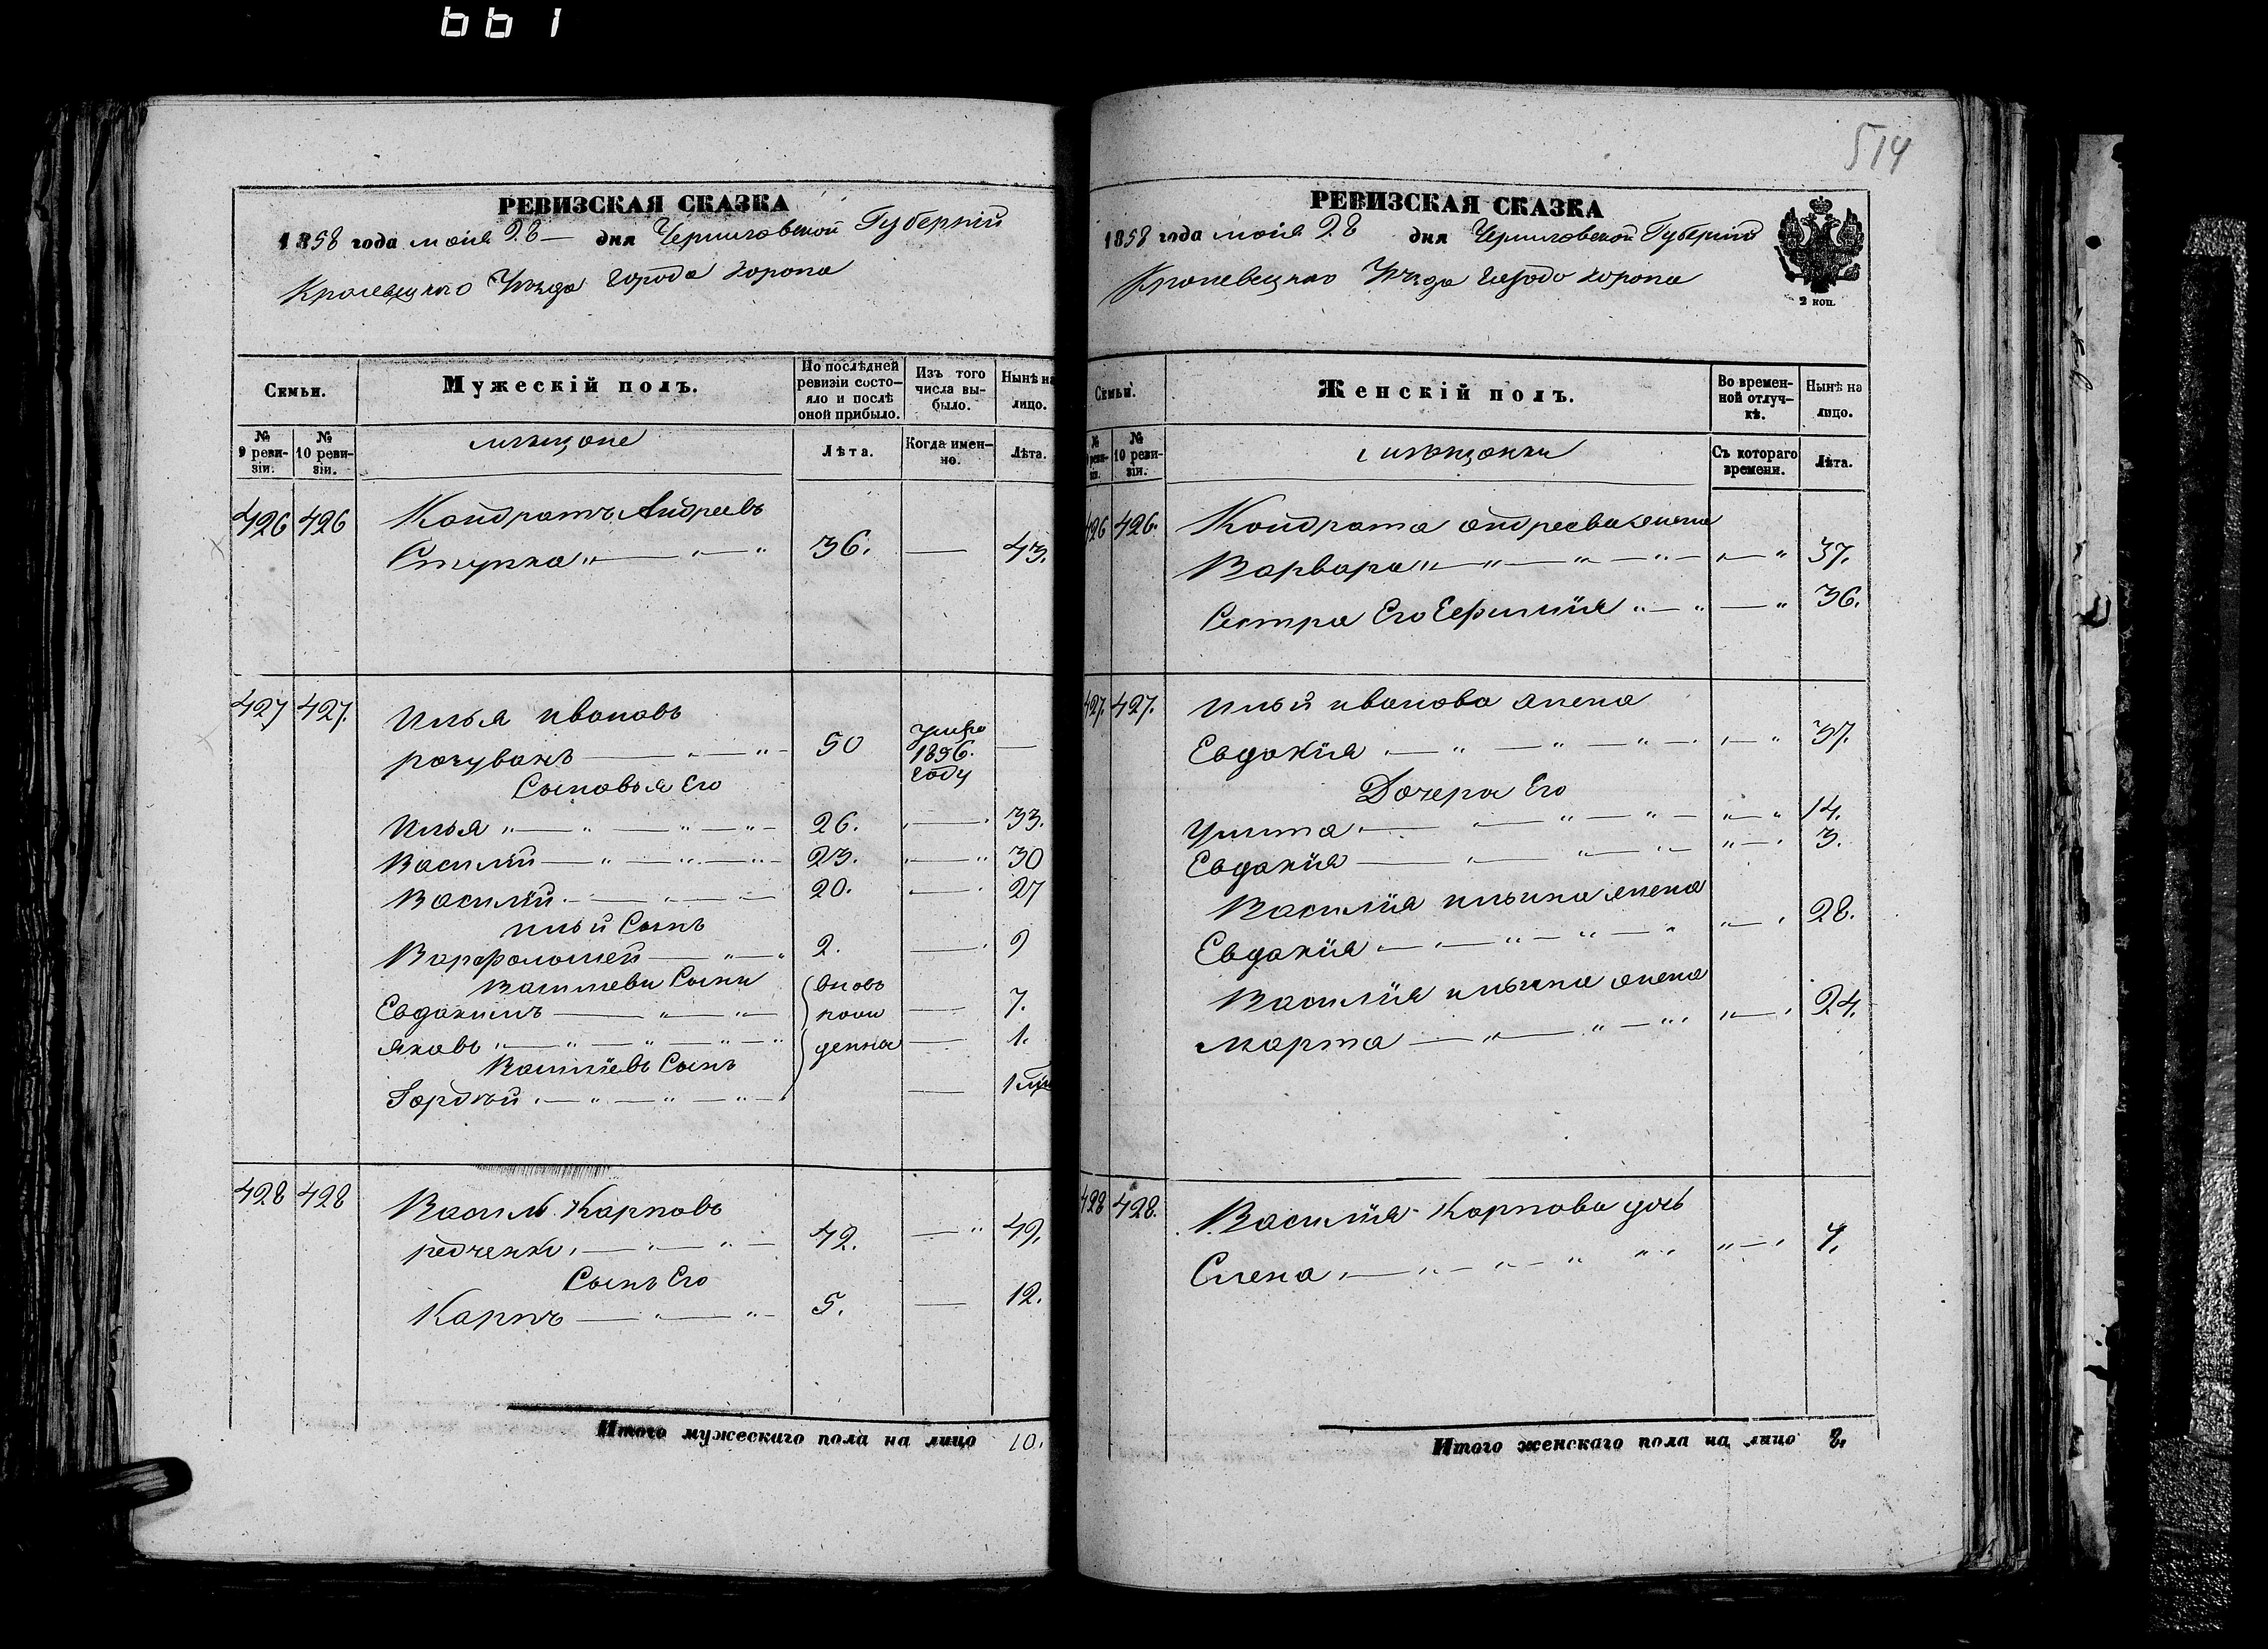 661
РЕВИЗСКАЯ СКАЗКА
1858 года мая 28 дня Черниговской Губерніи
Кролевецкаго Уѣзда города Коропа
Семьи.
Мужескій полъ.
По послѣдней ревизіи состояло и послѣ оной прибыло.
Изъ того числа выбыло.
Нынѣ на лицо.
№ 9 ревизіи.
№ 10 ревизіи.
мѣщане
Лѣта.
Когда именно.
Лѣта.
426 426 Кондратъ Андреевъ
Ступка 36. — 43.
427 427. Илья Ивановъ
50 умре 1856. году —
Сыновья Его
Илья 26. — 33.
Василій 23. — 30
Василій 20. — 27
Ильи Сынъ
Варфоломей 2. — 9
Васильеви Сыни
Евдокимъ — 7.
вновь рожденна
Яковъ — 1.
Василіевъ Сынъ
Гордѣй — 1
428 428 Василь Карповъ
редченко 42. — 49.
Сынъ Его
Карпъ 5. — 12.
Итого мужескаго пола на лицо 10.
514
РЕВИЗСКАЯ СКАЗКА
1858 года мая 28 дня Черниговской Губерніи
Кролевецкаго Уѣзда города Коропа
2 коп.
Семьи.
Женскій полъ.
Во временной отлучкѣ.
Нынѣ на лицо.
№ 9 ревизіи.
№ 10 ревизіи.
мѣщанки
Съ котораго времени.
Лѣта.
426 426. Кондрата Андреева жена
Варвара 37.
Сестра Его Ефимія 36.
427. 427. Ильи Иванова жена
Евдокія 37.
Дочери Его
Улита 14.
Евдокія 3.
Василія Ильина жена
Евдокія 28.
Василія Ильина жена
Марта 24.
428 428. Василія Карпова дочь
Елена 7.
Итого женскаго пола на лицо 8.